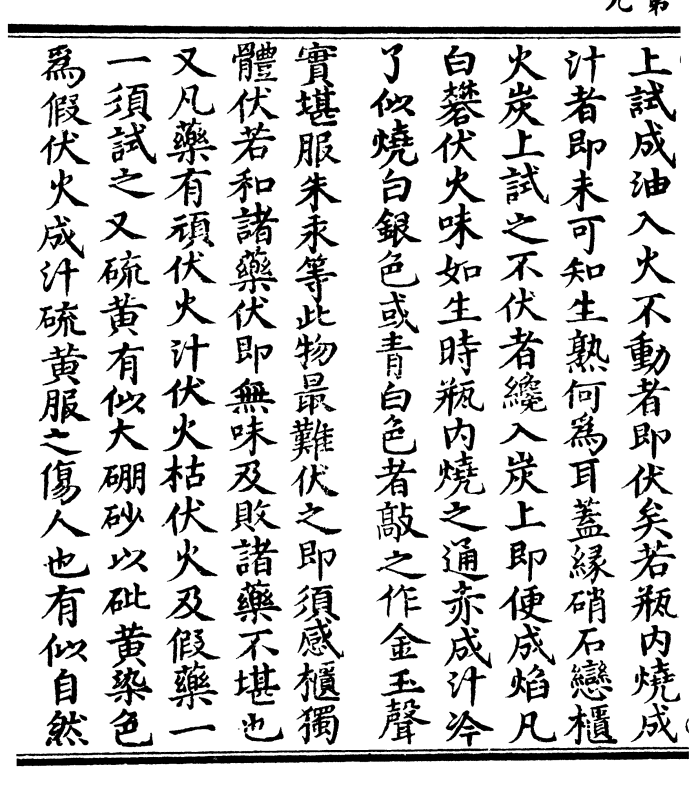 上試成油入火不動者即伏矣若瓶内燒成
汁者即未可知生熟何爲耳蓋緣硝石戀櫃
火炭上試之不伏者纔入炭上即便成焰凡
白礬伏火味如生時瓶内燒之通赤成汁冷
了似燒白銀色或青白色者敲之作金玉聲
實堪服朱汞等此物最難伏之即須感櫃獨
體伏若和諸藥伏即無味及敗諸藥不堪也
又凡藥有頑伏火汁伏火枯伏火及假藥一
一須試之又硫黄有似大硼砂以砒黄染色
爲假伏火成汁硫黄服之傷人也有似自然